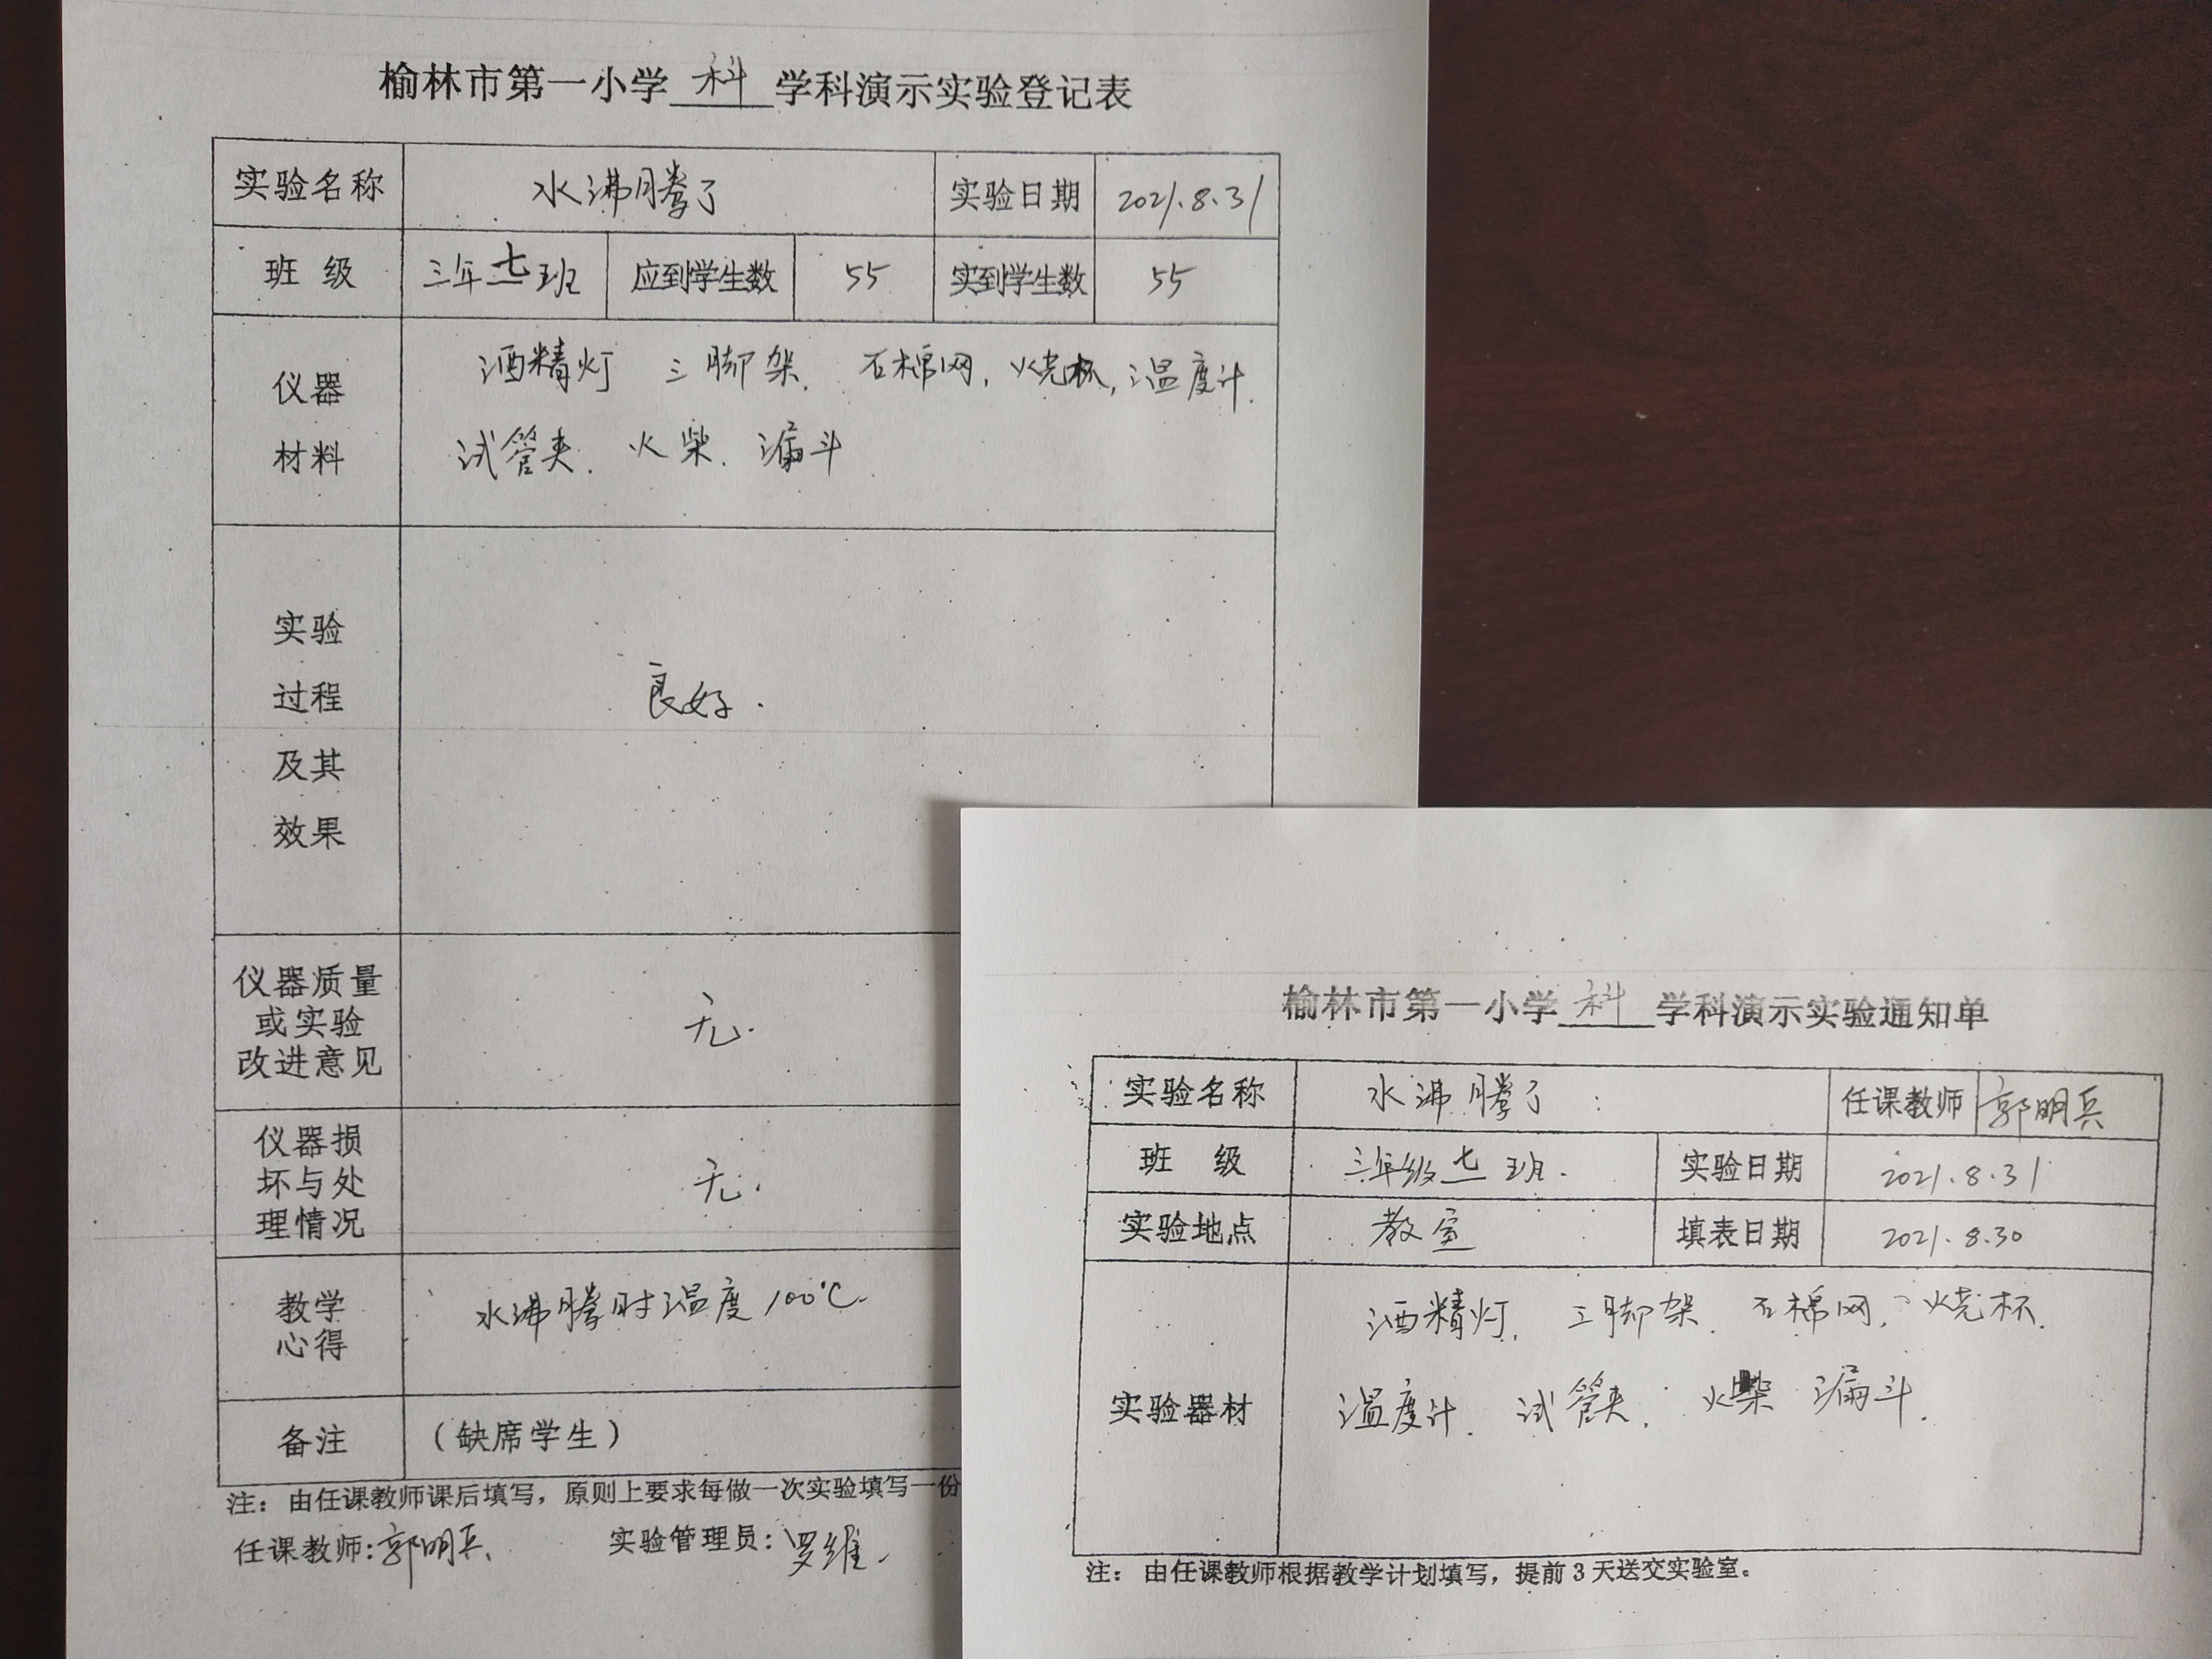 榆林市第一小学 科 学科演示实验登记表
实验名称 水沸腾了 实验日期 2021.8.31
班 级 三年七班 应到学生数 55 实到学生数 55
仪器 酒精灯 三脚架. 石棉网, 烧杯, 温度计.
材料 试管夹. 火柴. 漏斗
实验
过程 良好.
及其
效果
仪器质量
或实验 无.
改进意见
仪器损
坏与处 无.
理情况
教学 水沸腾时温度100℃.
心得
备注 （缺席学生）
注：由任课教师课后填写，原则上要求每做一次实验填写一份
任课教师:郭明兵. 实验管理员:罗维.
榆林市第一小学 科 学科演示实验通知单
实验名称 水沸腾了 任课教师 郭明兵
班 级 三年级七班. 实验日期 2021.8.31
实验地点 教室 填表日期 2021.8.30
酒精灯. 三脚架. 石棉网, 烧杯.
实验器材 温度计. 试管夹. 火柴 漏斗.
注：由任课教师根据教学计划填写，提前3天送交实验室。